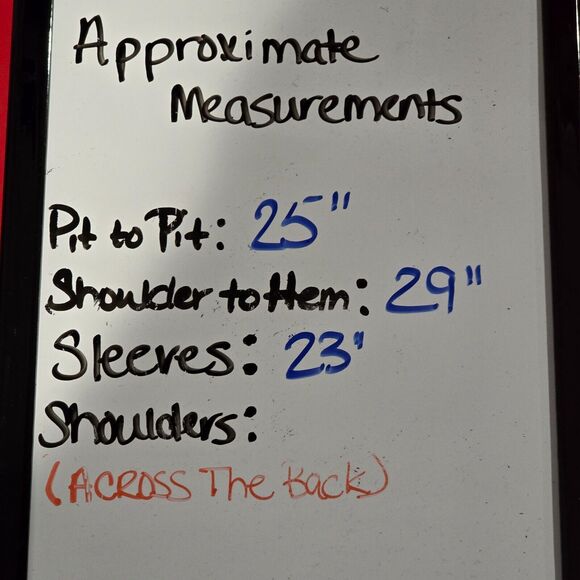 Approximate
Measurements
Pit to Pit: 25"
Shoulder to Hem: 29"
Sleeves: 23"
Shoulders:
(Across The Back)